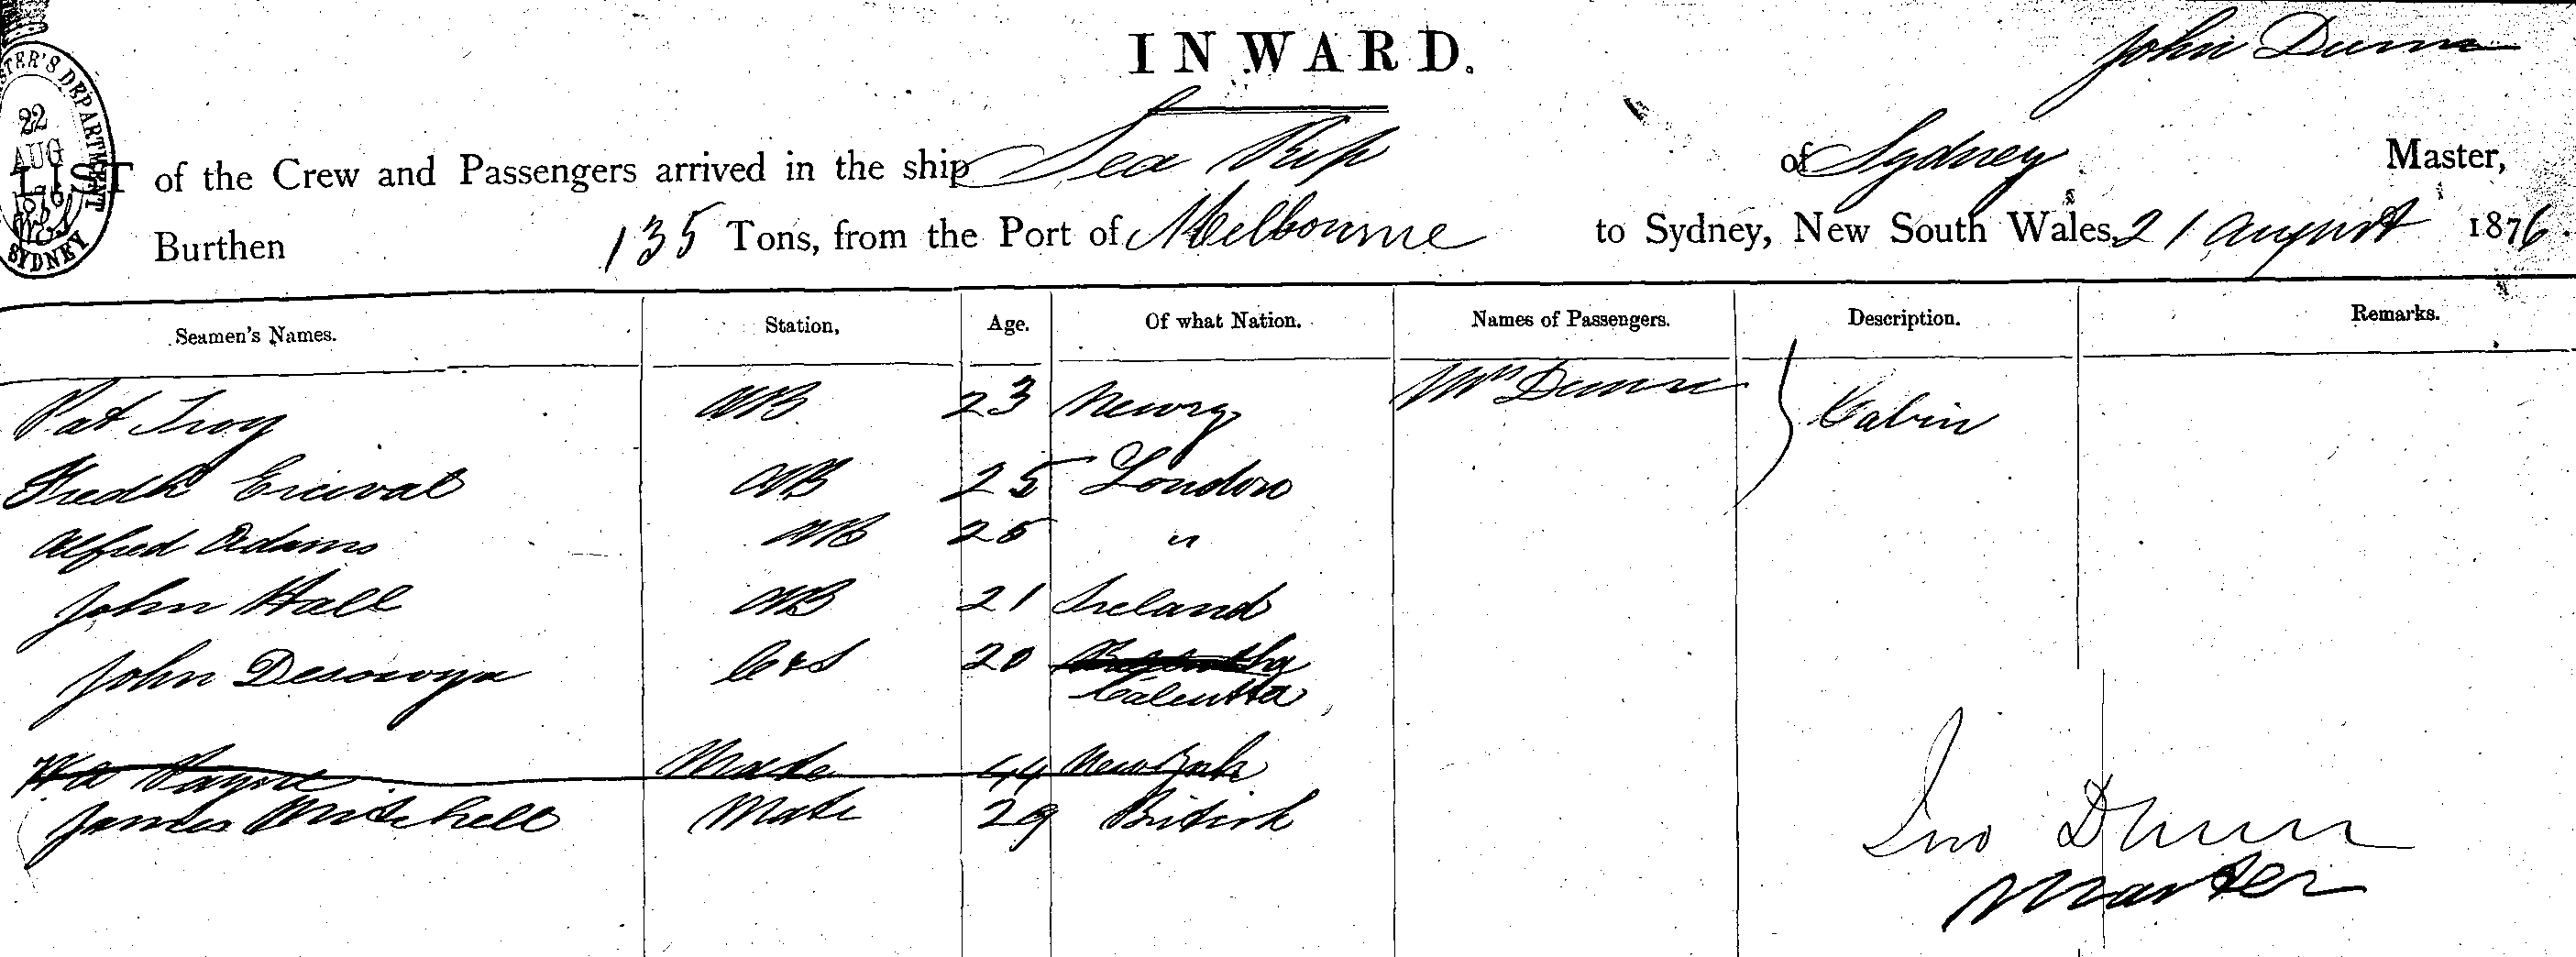 INWARD.
John Dunn
LIST of the Crew and Passengers arrived in the ship Sea Rip of Sydney Master,
Burthen 135 Tons, from the Port of Melbourne to Sydney, New South Wales, 21 August 1876.
22
AUG
1876
SYDNEY
Seamen's Names. Station, Age. Of what Nation. Names of Passengers. Description. Remarks.
Pat Troy AB 23 Newry Mrs Dunn Cabin
Fredk AB 25 London
Alfred Adams AB 25 "
John Hall AB 21 Ireland
John C&S 20
Calcutta
Payne Mate 44 New York
James Mitchell Mate 29 British
Jno Dunn
Master